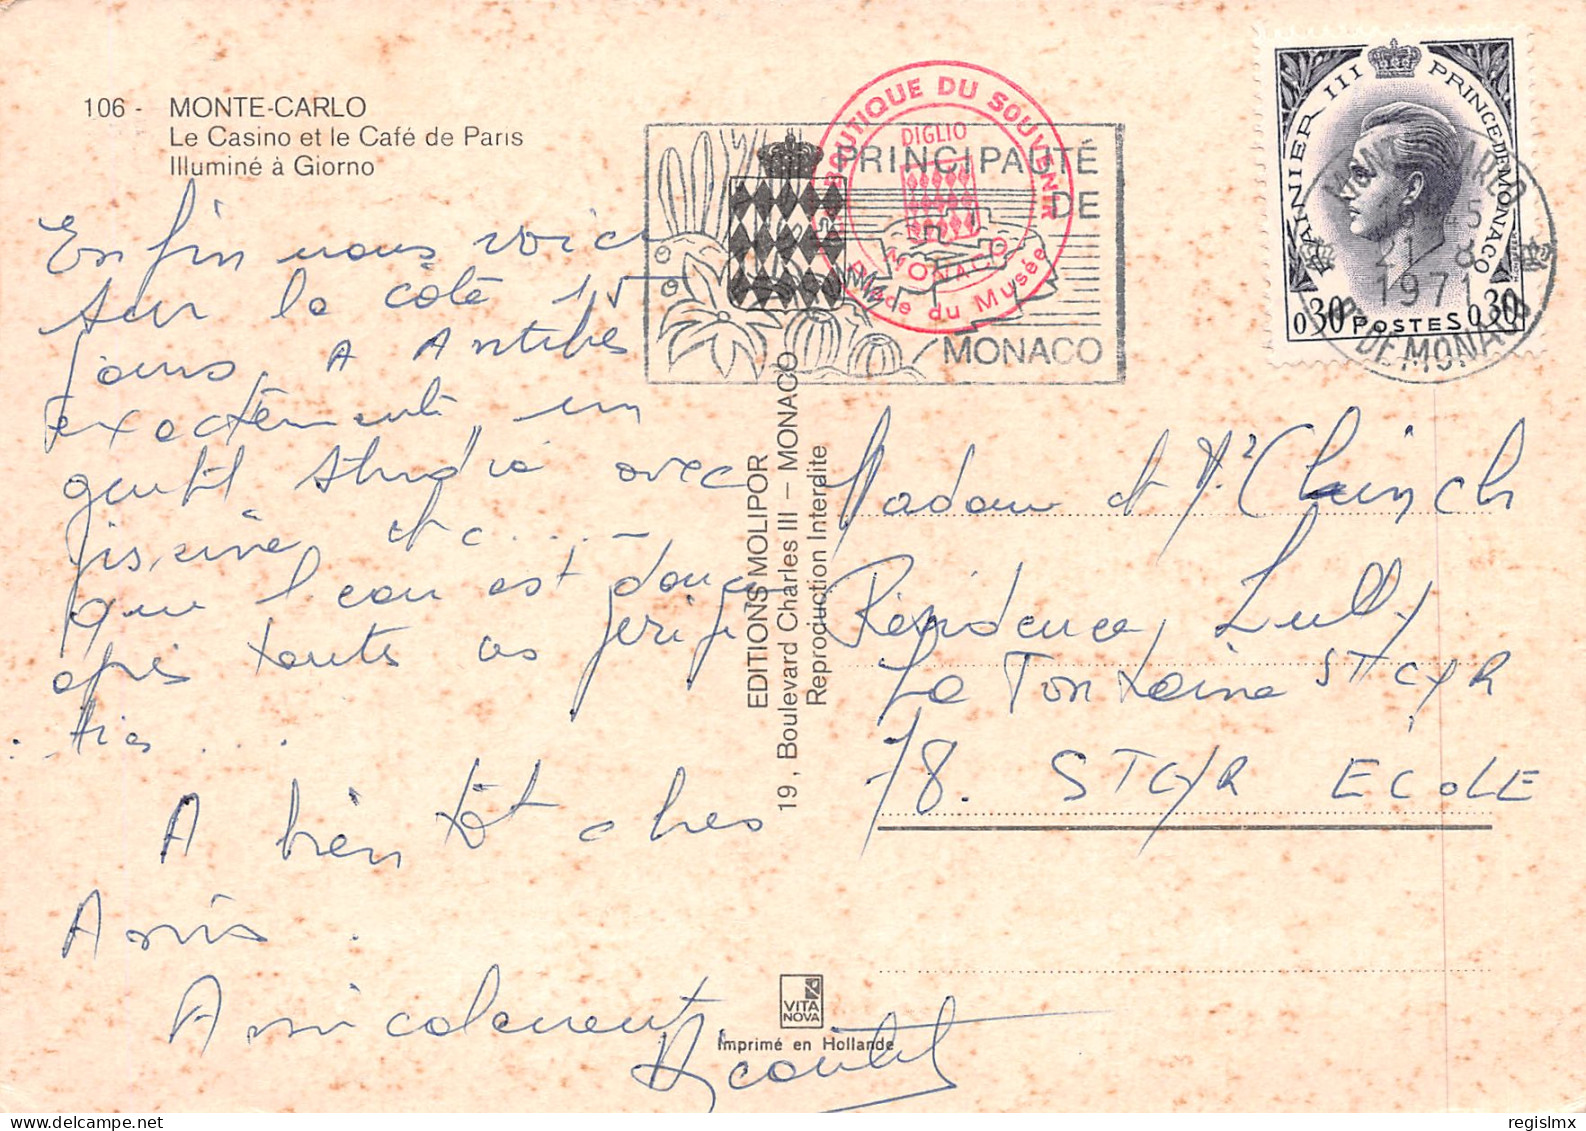 106 - MONTE-CARLO
Le Casino et le Café de Paris
Illuminé à Giorno
Enfin nous voici
sur la côte 15
jours, A Antibes
exactement, un
gentil studio avec
piscine, etc.....-
que l'eau est douce
après toutes ces péripé
.. ties ...
A bientôt chers
Amis.
Amicalement
EDITIONS MOLIPOR
19, Boulevard Charles III – MONACO
Reproduction Interdite
VITA
NOVA
Imprimé en Hollande
BOUTIQUE DU SOUVENIR
DIGLIO
MONACO
Place du Musée
PRINCIPAUTÉ
DE
MONACO
RAINIER III PRINCE DE MONACO
0,30 POSTES 0,30
MONTE-CARLO
21 8
1971
PTE DE MONACO
Madame et Mr
Résidence Lully
La Fontaine St CYR
78. ST CYR ECOLE
regislmx